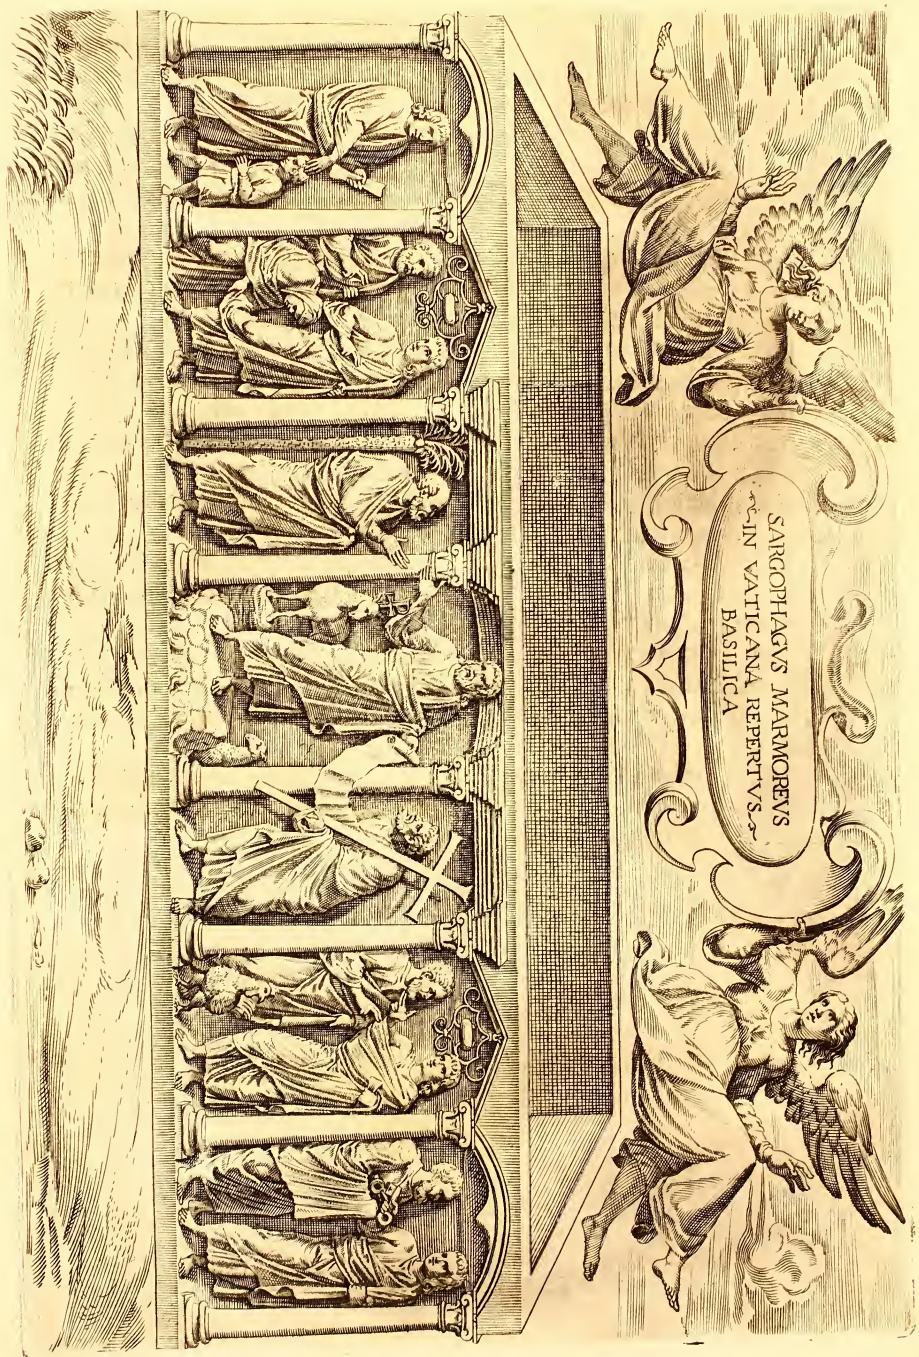 SARGOPHAGVS MARMOREVS
IN VATICANA REPERTVS
BASILICA